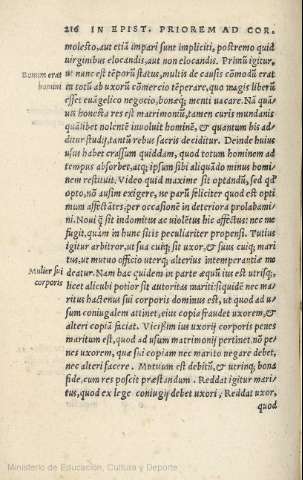 216 IN EPIST. PRIOREM AD COR.
molesto, aut etiā impari sunt impliciti, postremo quid
uirginibus elocandis, aut non elocandis. Primū igitur,
Bonum erat
homini
ut nunc est tēporū status, multis de causis cōmodū erat
in totū ab uxorū cōmercio tēperare, quo magis liberū
esset euāgelico negocio, bonæq; menti uacare. Nā quā-
uis honesta res est matrimoniū, tamen curis mundanis
quālibet nolentē inuoluit hominē, & quantum his ad-
ditur studij, tantū rebus sacris deciditur. Deinde huius
usus habet crassum quiddam, quod totum hominem ad
tempus absorbet, atq; ipsum sibi aliquādo minus homi-
nem restituit. Video quid maxime sit optandū, sed qď
opto, nō ausim exigere, ne parū feliciter quod est opti-
mum affectātes, per occasionē in deteriora prolabami-
ni. Noui q̄ sit indomitus ac uiolētus hic affectus: nec me
fugit, quàm in hunc sitis peculiariter propensi. Tutius
igitur arbitror, ut sua cuiq; sit uxor, & suus cuiq; mari-
tus, ut mutuo officio uterq; alterius intemperantiæ me
Mulier sui
corporis
deatur. Nam hac quidem in parte æquū ius est utrisq;,
licet alicubi potior sit autoritas mariti: siquidē nec ma-
ritus hactenus sui corporis dominus est, ut quod ad u-
sum coniugalem attinet, eius copia fraudet uxorem, &
alteri copiā faciat. Vicissim ius uxorij corporis penes
maritum est, quod ad usum matrimonij pertinet. nō pe-
nes uxorem, quæ sui copiam nec marito negare debet,
nec alteri facere. Mutuum est debitū, & utrinq; bona
fide, cum res poscit præstandum. Reddat igitur mari-
tus, quod ex lege coniugij debet uxori, Reddat uxor,
quod
Ministerio de Educación, Cultura y Deporte